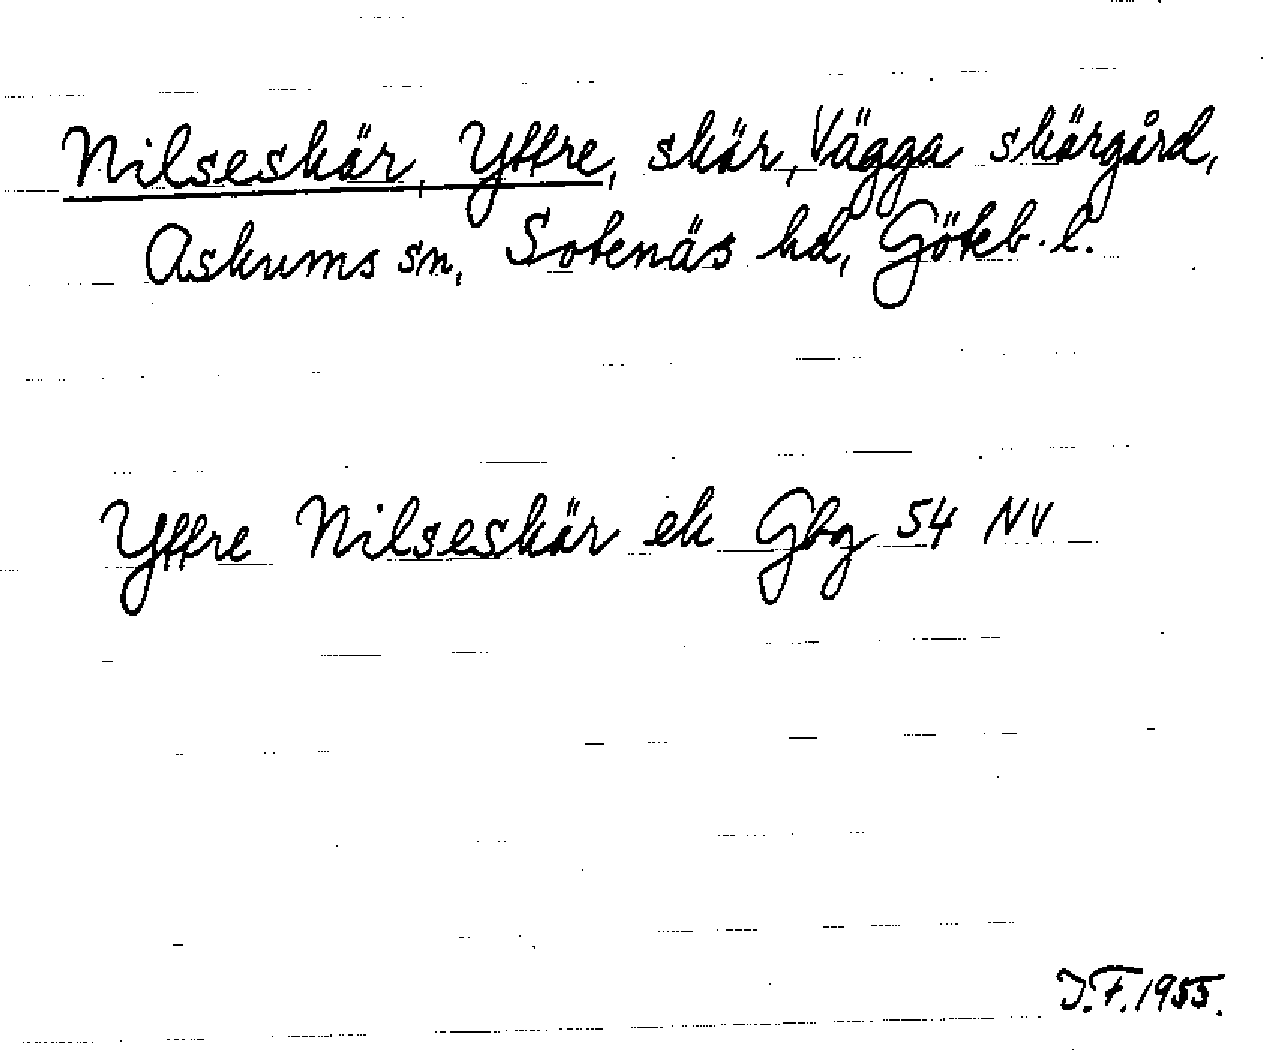 Nilseskär, Yttre, skär, Vägga skärgård,
Askums sn, Sotenäs hd, Göteb. l.
Yttre Nilseskär ek Gbg 54 NV
J.F. 1955.